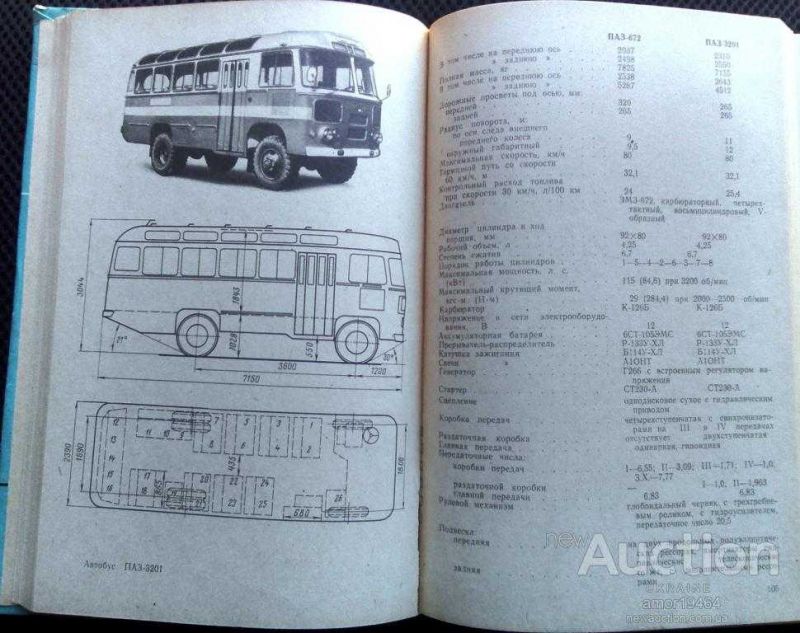 3044
1843
1028
550
21°
30°
3600
1200
7150
2390
1690
435
665
680
1800
Автобус ПАЗ-3201
ПАЗ-672 ПАЗ-3201
В том числе на переднюю ось 2037 2315
» заднюю » 2498 2550
Полная масса, кг 7825 7155
В том числе на переднюю ось 2538 2643
» заднюю » 5287 4512
Дорожные просветы под осью, мм:
передней 320 265
задней 265 265
Радиус поворота, м:
по оси следа внешнего
переднего колеса 9 11
наружный габаритный 9,5 12
Максимальная скорость, км/ч 80 80
Тормозной путь со скорости
60 км/ч, м 32,1 32,1
Контрольный расход топлива
при скорости 30 км/ч, л/100 км 24 25,4
Двигатель ЗМЗ-672, карбюраторный, четырех-
тактный, восьмицилиндровый, V-
образный
Диаметр цилиндра и ход
поршня, мм 92×80 92×80
Рабочий объем, л 4,25 4,25
Степень сжатия 6,7 6,7
Порядок работы цилиндров 1—5—4—2—6—3—7—8
Максимальная мощность, л. с.
(кВт) 115 (84,6) при 3200 об/мин
Максимальный крутящий момент,
кгс·м (Н·м) 29 (284,4) при 2000—2500 об/мин
Карбюратор К-126Б К-126Б
Напряжение в сети электрооборудо-
вания, В 12 12
Аккумуляторная батарея 6СТ-105ЭМС 6СТ-105ЭМС
Прерыватель-распределитель Р-133У-ХЛ Р-133У-ХЛ
Катушка зажигания Б114У-ХЛ Б114У-ХЛ
Свечи А10НТ А10НТ
Генератор Г266 с встроенным регулятором на-
пряжения
Стартер СТ230-А СТ230-А
Сцепление однодисковое сухое с гидравлическим
приводом
Коробка передач четырехступенчатая с синхронизато-
рами на III и IV передачах
Раздаточная коробка отсутствует двухступенчатая
Главная передача одинарная, гипоидная
Передаточные числа:
коробки передач I—6,55; II—3,09; III—1,71; IV—1,0;
З.Х.—7,77
раздаточной коробки — I—1,0; II—1,963
главной передачи 6,83 6,83
Рулевой механизм глобоидальный червяк, с трехгребне-
вым роликом, с гидроусилителем,
передаточное число 20,5
Подвески:
передняя на двух продольных полуэллиптиче-
задняя
new Auction
UKRAINE
amor19464
newauction.com.ua